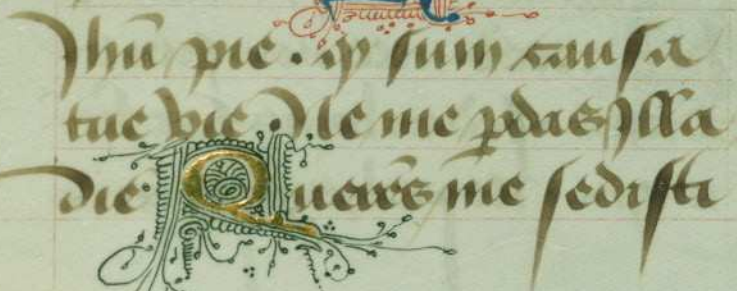 Jhū pie . q̄ sum causa
tue vie . Ne me ꝑdas illa
die Querēs me sedisti